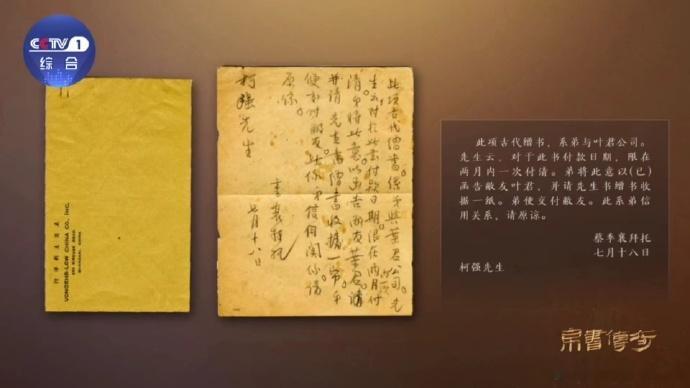 CCTV 1
综合
VONGEHR-LOW CHINA CO., INC.
此项古代缯书係弟與葉君公司。先
生云对於此书付款日期限在兩月付
清。弟将此意以函告敝友葉君。
并请先生书缯书收據一帋。弟
便交付敝友。此係弟信用関係。请
原谅。
季襄拜托
七月十八日
柯强先生
此项古代缯书，系弟与叶君公司。
先生云，对于此书付款日期，限在
两月内一次付清。弟将此意以(已)
函告敝友叶君，并请先生书缯书收
据一纸。弟便交付敝友。此系弟信
用关系，请原谅。
蔡季襄拜托
七月十八日
柯强先生
帛書傳奇